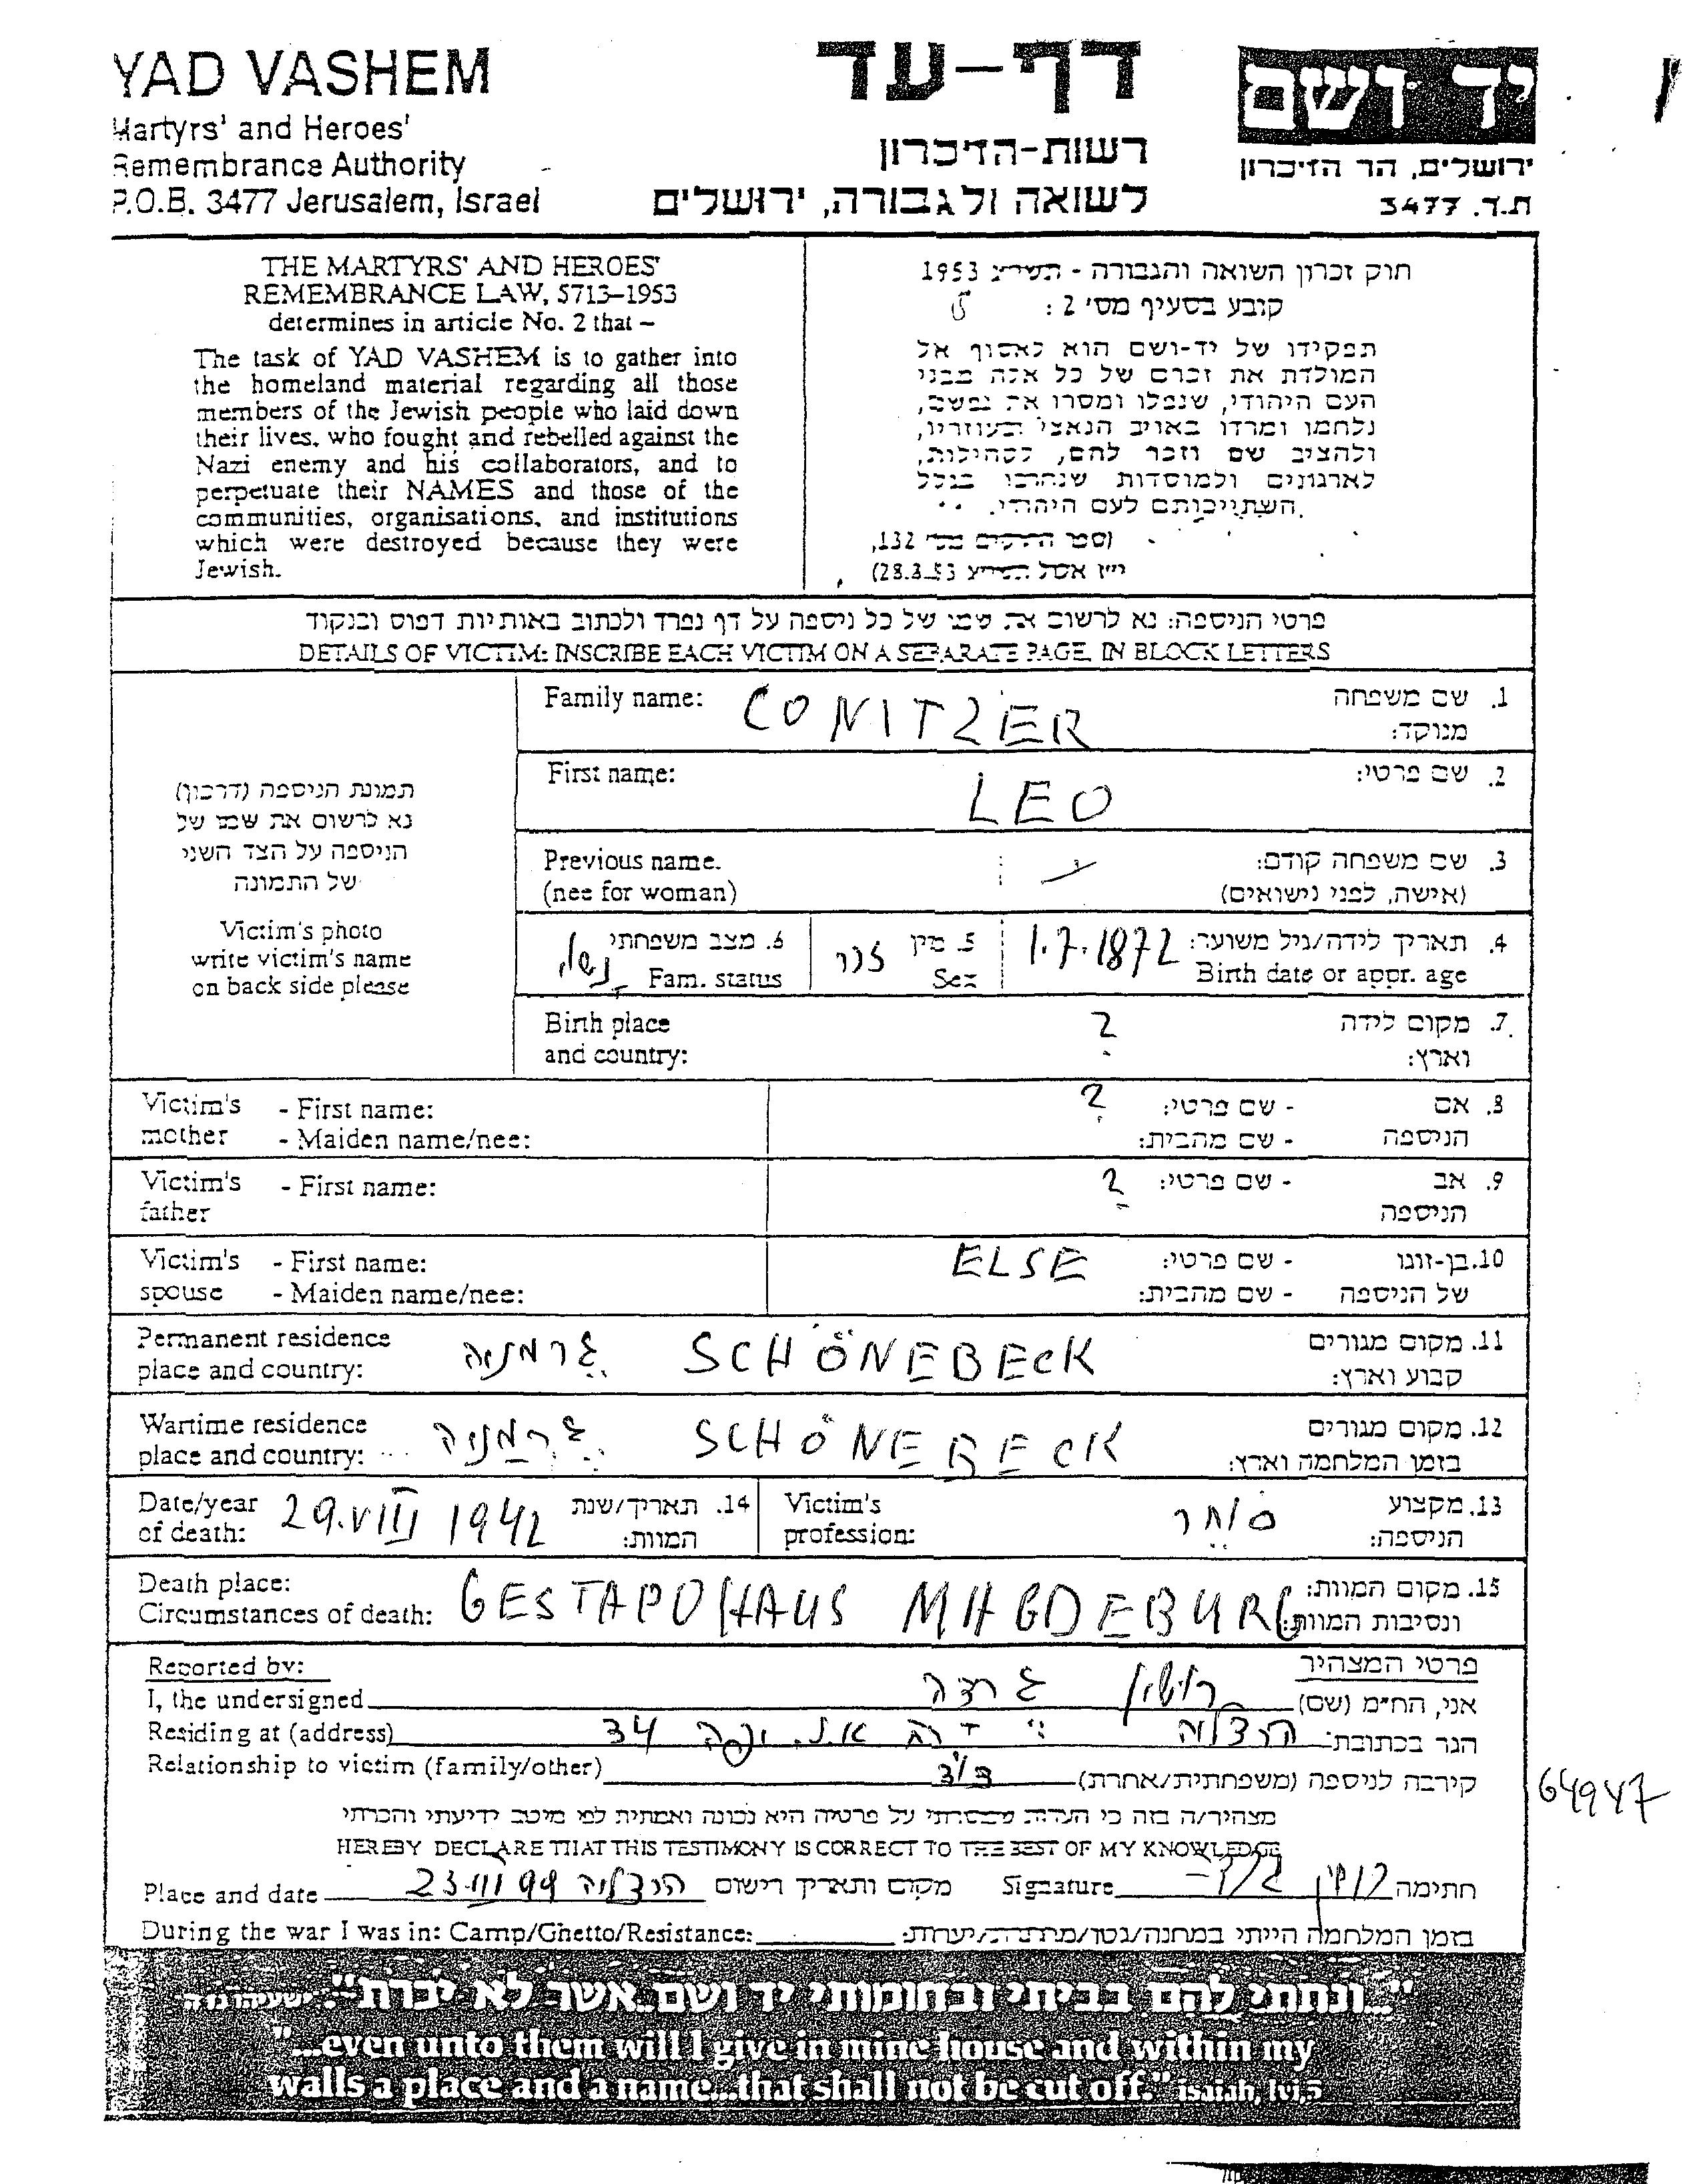 YAD VASHEM
Martyrs' and Heroes'
Remembrance Authority
P.O.B. 3477 Jerusalem, Israel
דף-עד
רשות-הזיכרון
לשואה ולגבורה, ירושלים
יד ושם
ירושלים, הר הזיכרון
ת.ד. 3477
THE MARTYRS' AND HEROES'
REMEMBRANCE LAW, 5713–1953
determines in article No. 2 that –
The task of YAD VASHEM is to gather into
the homeland material regarding all those
members of the Jewish people who laid down
their lives, who fought and rebelled against the
Nazi enemy and his collaborators, and to
perpetuate their NAMES and those of the
communities, organisations, and institutions
which were destroyed because they were
Jewish.
חוק זכרון השואה והגבורה - תשי"ג 1953
קובע בסעיף מס' 2 :
תפקידו של יד-ושם הוא לאסוף אל
המולדת את זכרם של כל אלה מבני
העם היהודי, שנפלו ומסרו את נפשם,
נלחמו ומרדו באויב הנאצי ובעוזריו,
ולהציב שם וזכר להם, לקהילות,
לארגונים ולמוסדות שנחרבו בגלל
השתייכותם לעם היהודי.
(ספר החוקים מס' 132,
י"ז אלול תשי"ג 28.8.53)
פרטי הניספה: נא לרשום את שמו של כל ניספה על דף נפרד ולכתוב באותיות דפוס ובנקוד
DETAILS OF VICTIM: INSCRIBE EACH VICTIM ON A SEPARATE PAGE, IN BLOCK LETTERS
תמונת הניספה (דרכון)
נא לרשום את שמו של
הניספה על הצד השני
של התמונה
Victim's photo
write victim's name
on back side please
Family name: CONITZER 1. שם משפחה
מנוקד:
First name: LEO 2. שם פרטי:
Previous name. 3. שם משפחה קודם:
(nee for woman) (אישה, לפני נישואים)
4. תאריך לידה/גיל משוער: 1.7.1872 5. מין זכר 6. מצב משפחתי נשוי
Birth date or appr. age Sex Fam. status
Birth place ? 7. מקום לידה
and country: וארץ:
Victim's - First name: ? - שם פרטי: 8. אם
mother - Maiden name/nee: - שם מהבית: הניספה
Victim's - First name: ? - שם פרטי: 9. אב
father הניספה
Victim's - First name: ELSE - שם פרטי: 10. בן-זוגו
spouse - Maiden name/nee: - שם מהבית: של הניספה
Permanent residence גרמניה SCHÖNEBECK 11. מקום מגורים
place and country: קבוע וארץ:
Wartime residence גרמניה SCHÖNEBECK 12. מקום מגורים
place and country: בזמן המלחמה וארץ:
Date/year 29.VIII 1942 14. תאריך/שנת Victim's סוחר 13. מקצוע
of death: המוות: profession: הניספה:
Death place: GESTAPOHAUS MAGDEBURG 15. מקום המוות:
Circumstances of death: ונסיבות המוות:
Reported by: פרטי המצהיר
I, the undersigned אני, הח"מ (שם)
Residing at (address) 34 הרצליה הגר בכתובת:
Relationship to victim (family/other) קירבה לניספה (משפחתית/אחרת)
64947
מצהיר/ה בזה כי העדות שמסרתי על פרטיה היא נכונה ואמתית לפי מיטב ידיעתי והכרתי
HEREBY DECLARE THAT THIS TESTIMONY IS CORRECT TO THE BEST OF MY KNOWLEDGE
Place and date 23.III 99 הרצליה מקום ותאריך רישום Signature חתימה
During the war I was in: Camp/Ghetto/Resistance: בזמן המלחמה הייתי במחנה/גטו/מחתרת/יערות:
"...ונתתי להם בביתי ובחומותי יד ושם...אשר לא יכרת". ישעיהו נו ה
"...even unto them will I give in mine house and within my
walls a place and a name...that shall not be cut off." isaiah, lvi,5